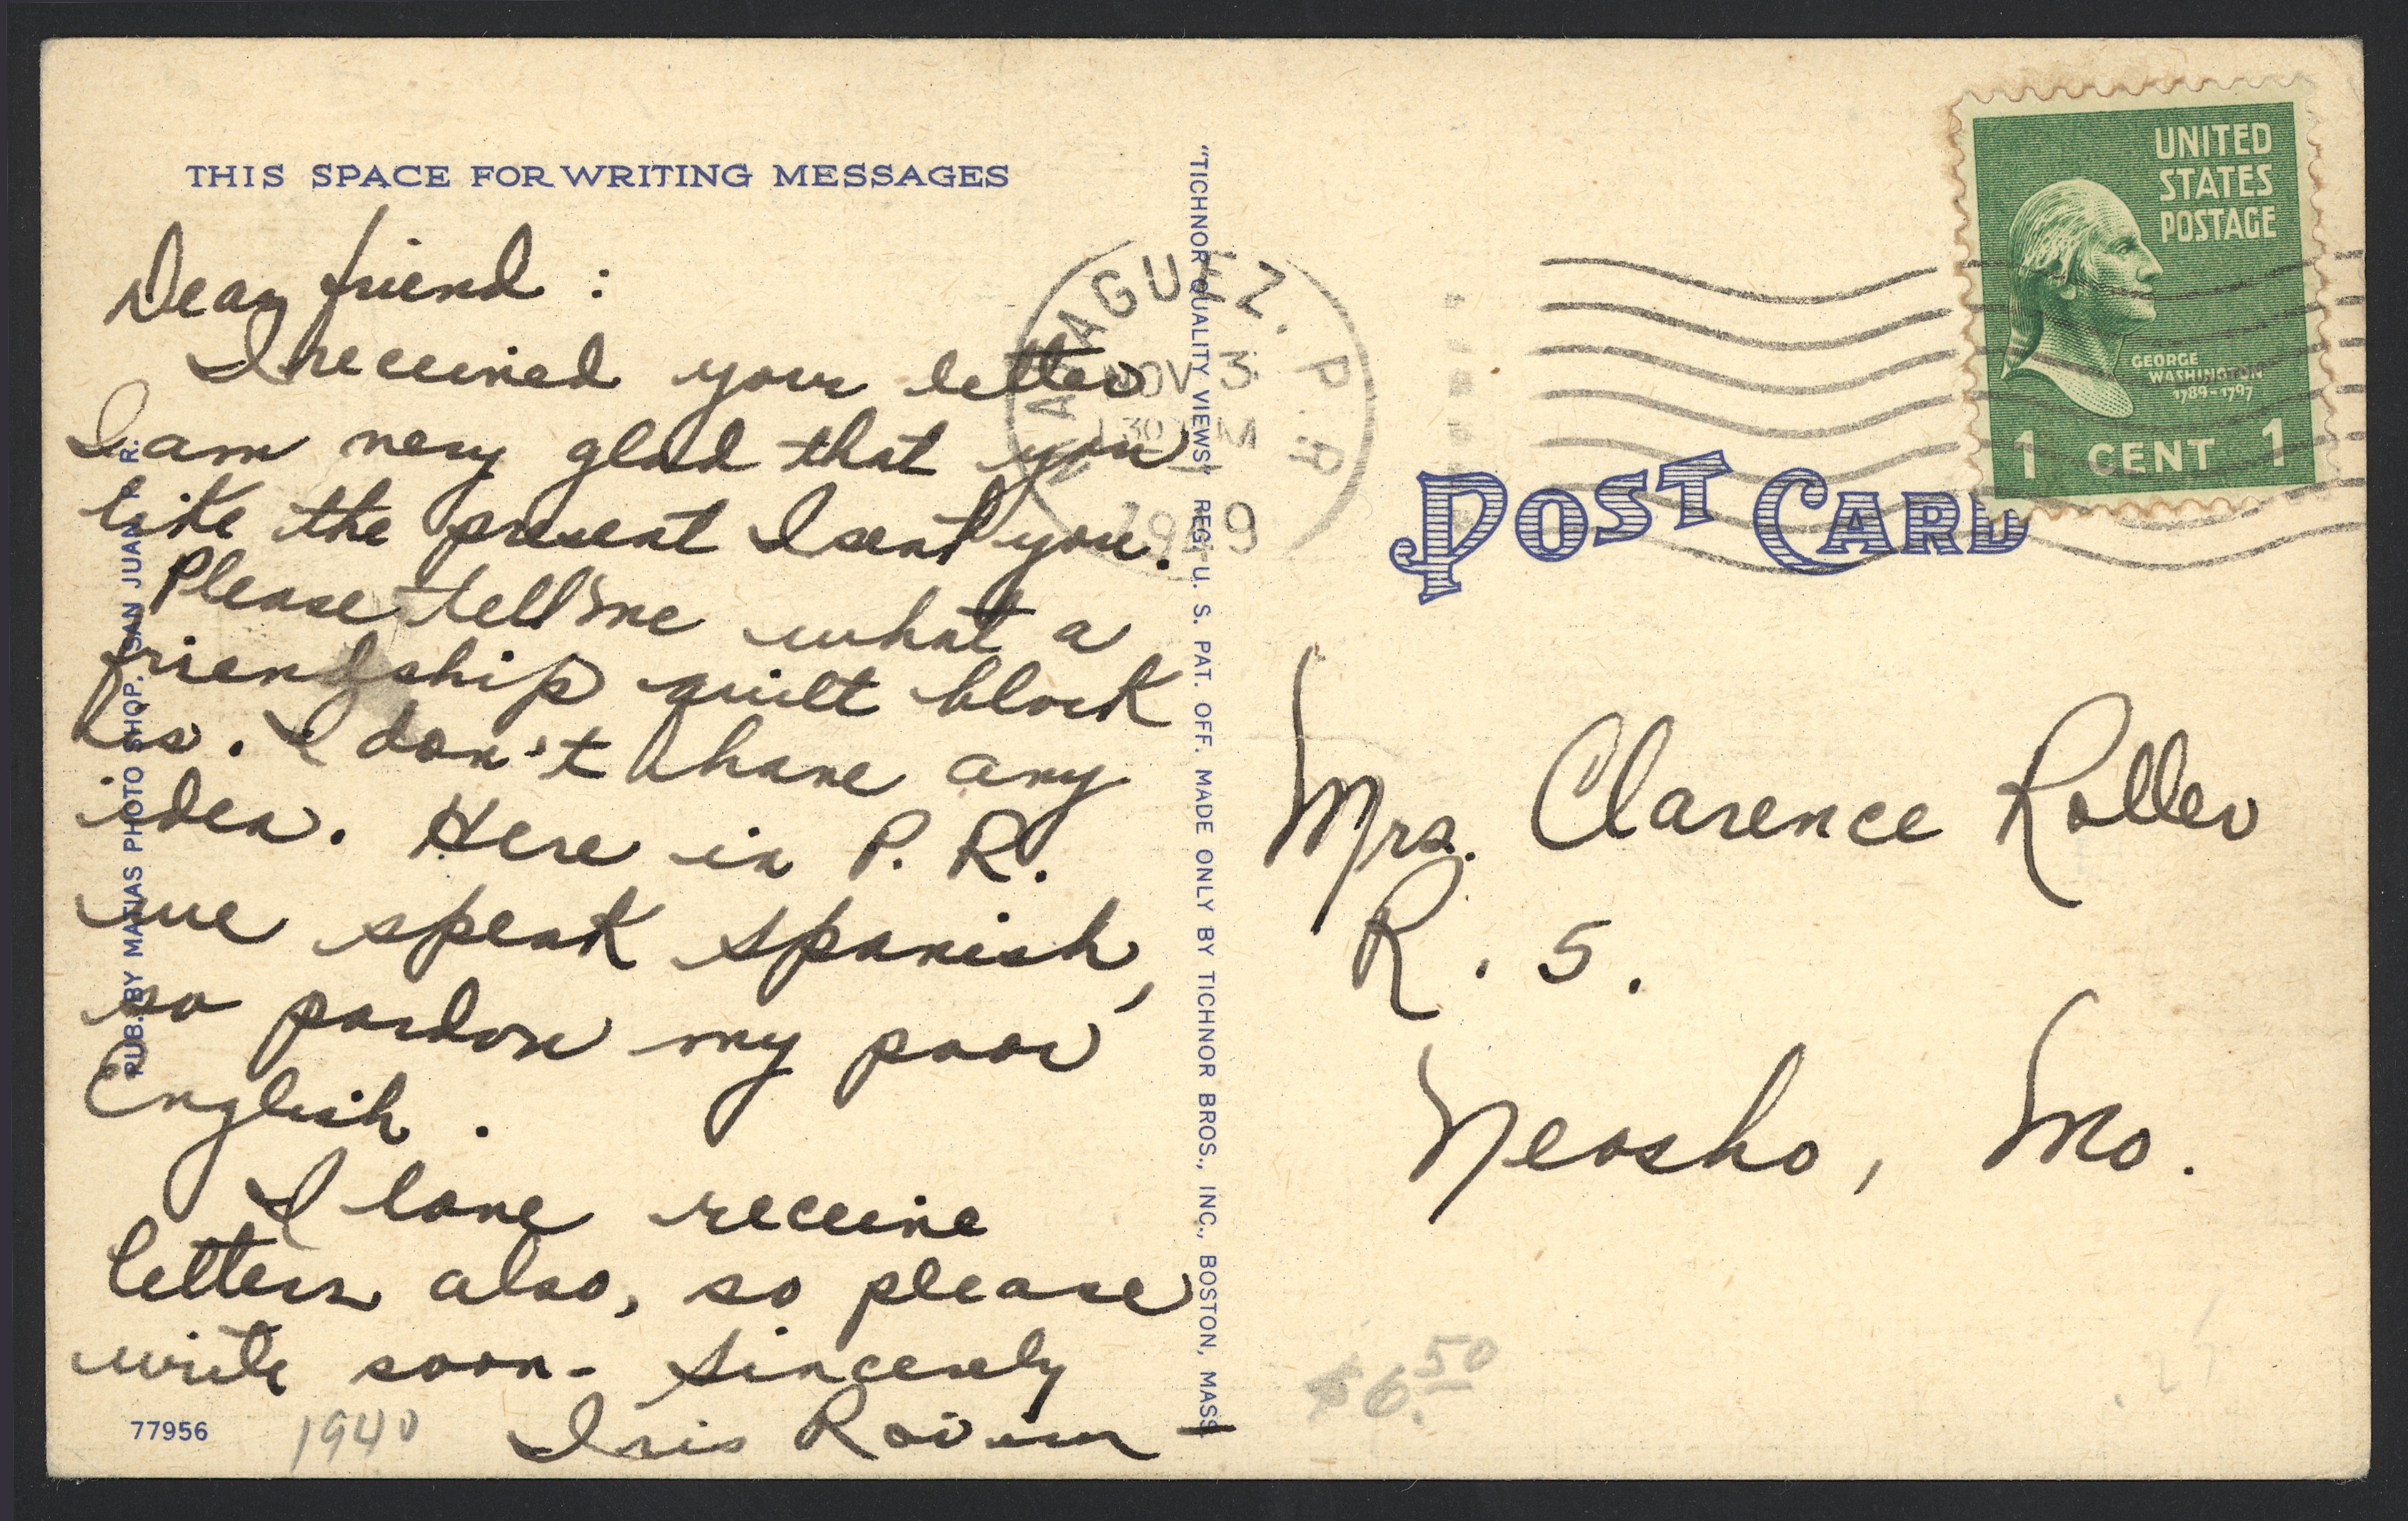 THIS SPACE FOR WRITING MESSAGES
Dear friend :
I received your letter
I am very glad that you
like the present I sent you.
Please tell me what a
friendship quilt block
is. I don't have any
idea. Here in P. R.
we speak Spanish,
so pardon my poor
English.
I love receive
letters also, so please
write soon - Sincerely
Iris
77956
1940
PUB. BY MATIAS PHOTO SHOP. SAN JUAN P. R.
"TICHNOR QUALITY VIEWS" REG. U. S. PAT. OFF. MADE ONLY BY TICHNOR BROS., INC., BOSTON, MASS
AGUEZ. P. R.
NOV 3
POST CARD
UNITED
STATES
POSTAGE
GEORGE
WASHINGTON
1789-1797
1 CENT 1
Mrs. Clarence Roller
R. 5.
Neosho, Mo.
$6.50